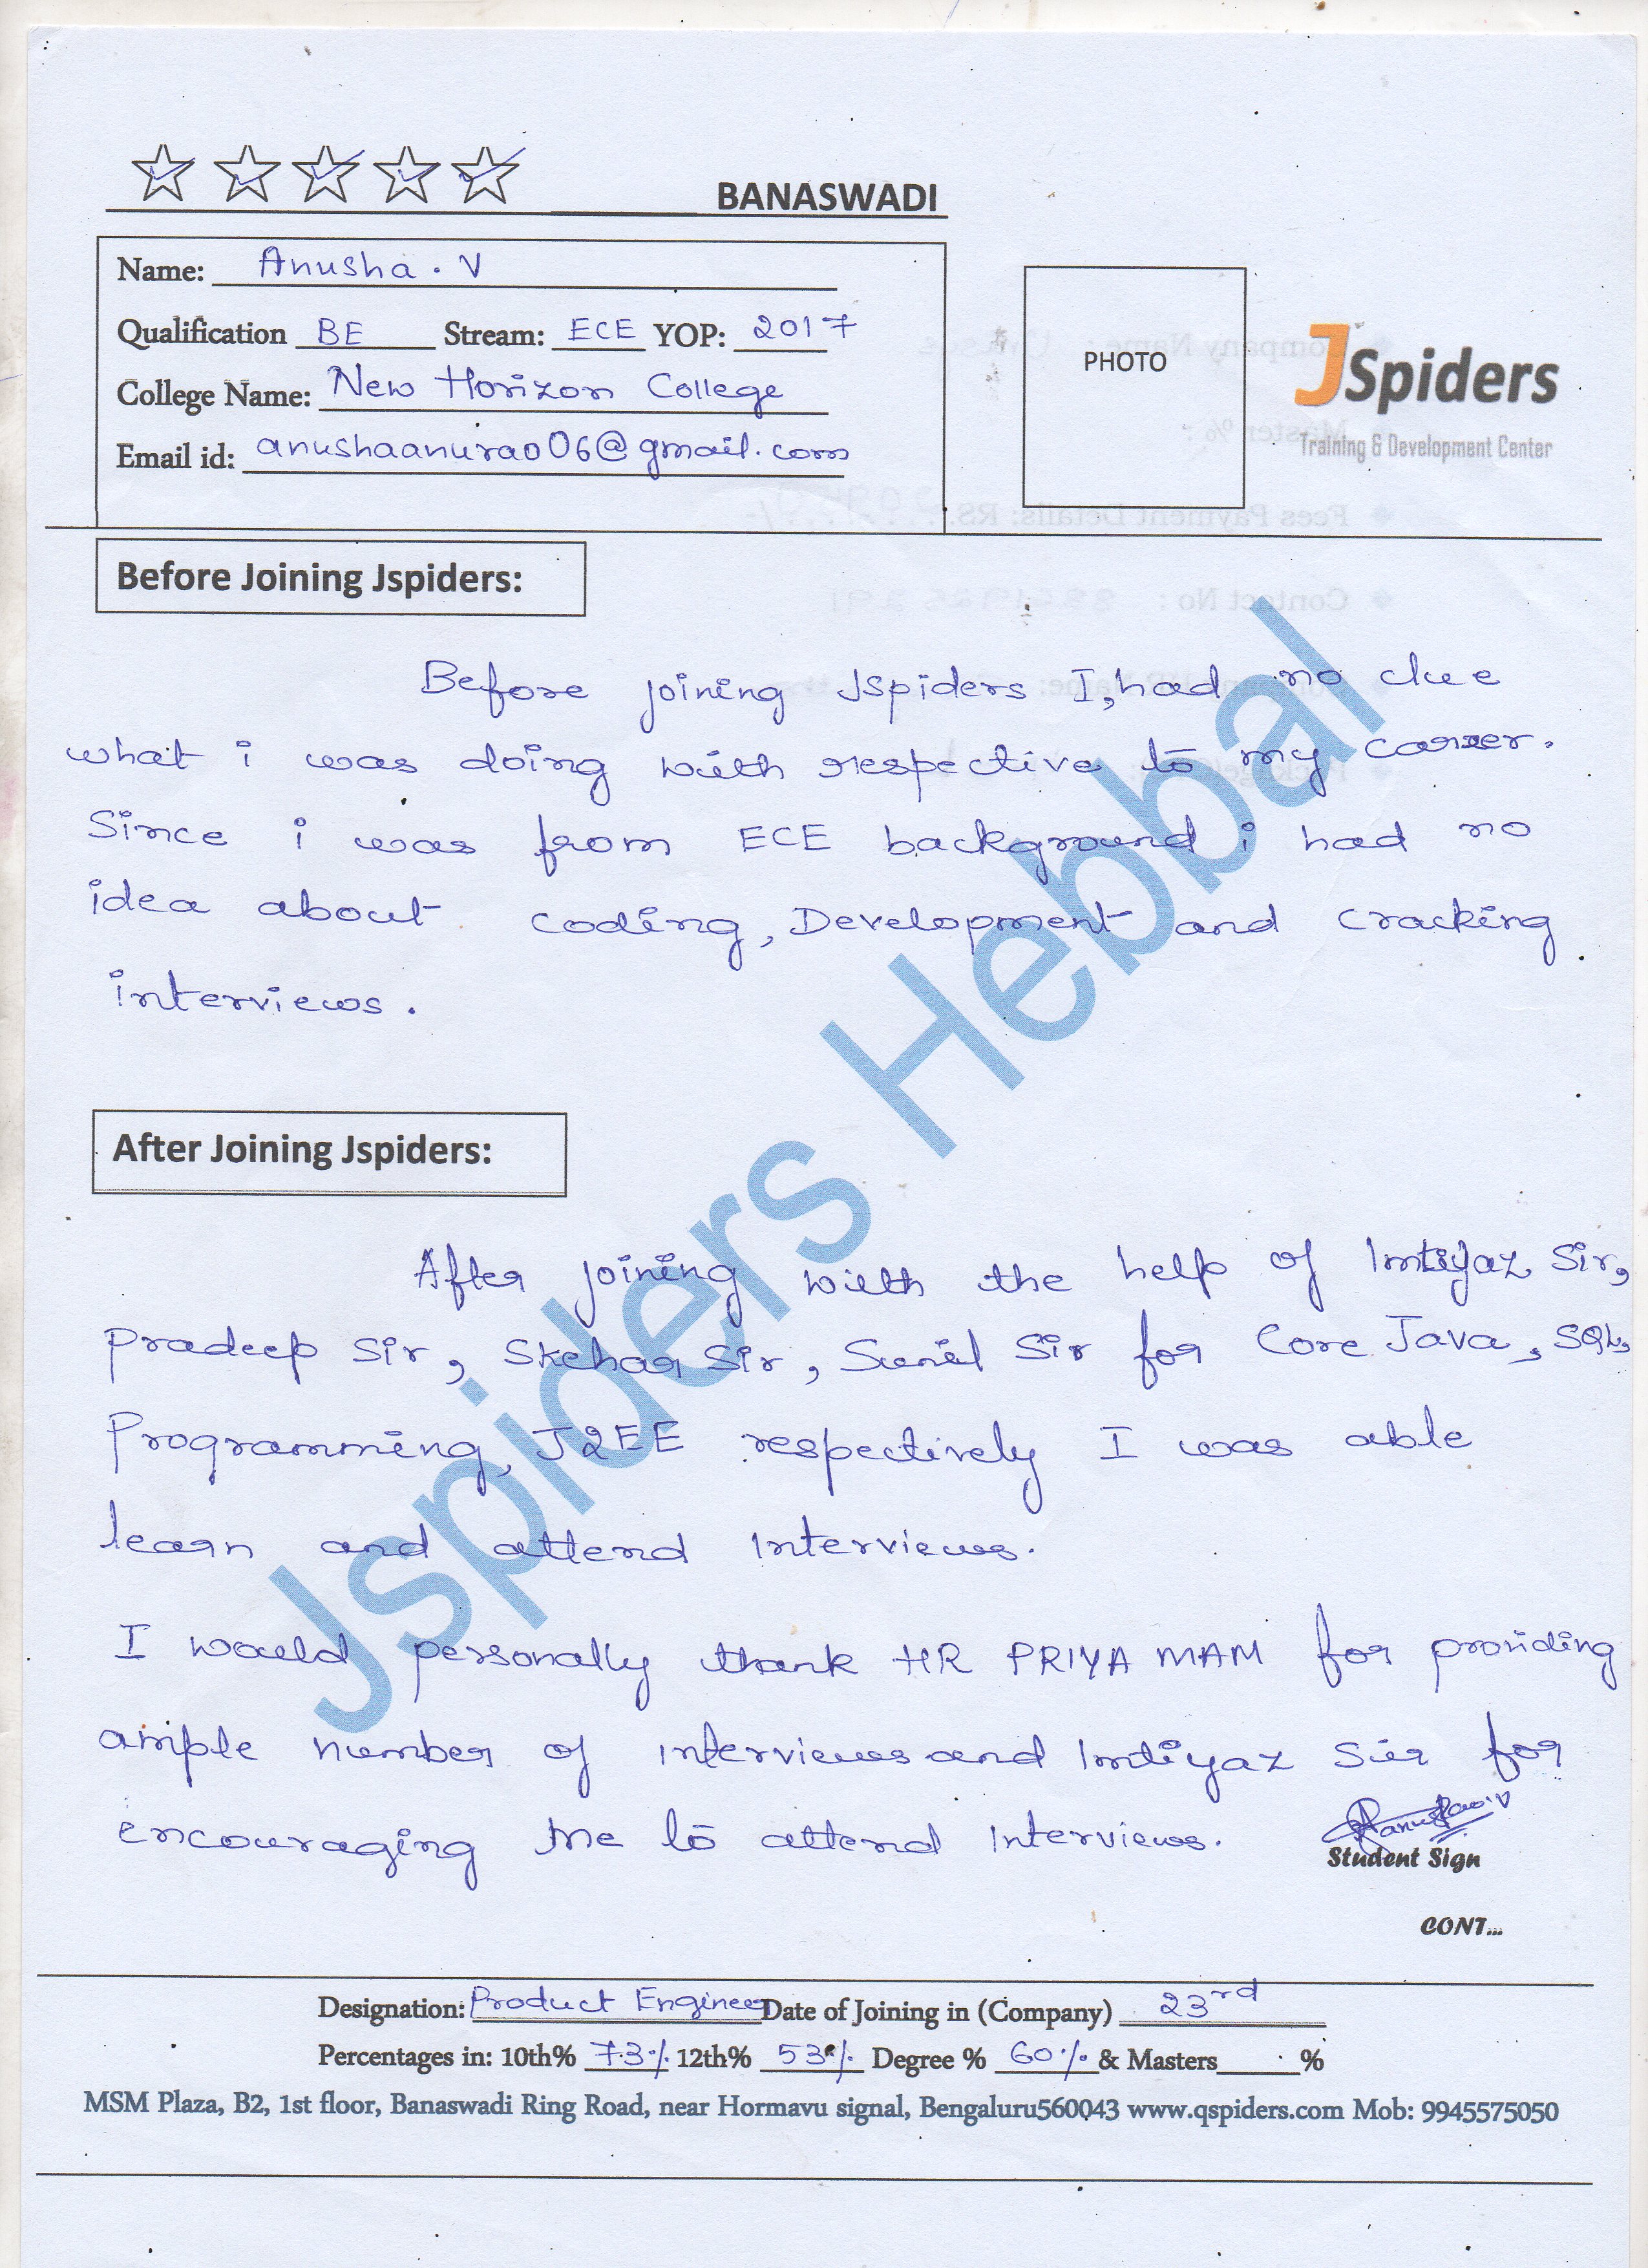 BANASWADI
Name: Anusha . V
Qualification BE Stream: ECE YOP: 2017
College Name: New Horizon College
Email id: anushaanurao06@gmail.com
PHOTO
JSpiders
Training & Development Center
Before Joining Jspiders:
Before joining Jspiders I, had no clue
what i was doing with respective to my career.
Since i was from ECE background i had no
idea about coding, Development and cracking
interviews.
After Joining Jspiders:
After joining with the help of Imtiyaz Sir,
Pradeep Sir, Skehar Sir, Sunil Sir for Core Java, SQL,
Programming, J2EE respectively I was able
learn and attend Interviews.
I would personally thank HR PRIYA MAM for providing
ample number of interviews and Imtiyaz Sir for
encouraging me to attend Interviews.
Student Sign
CONT...
Designation: Product Engineer Date of Joining in (Company) 23rd
Percentages in: 10th% 73% 12th% 53% Degree % 60% & Masters %
MSM Plaza, B2, 1st floor, Banaswadi Ring Road, near Hormavu signal, Bengaluru560043 www.qspiders.com Mob: 9945575050
Jspiders Hebbal